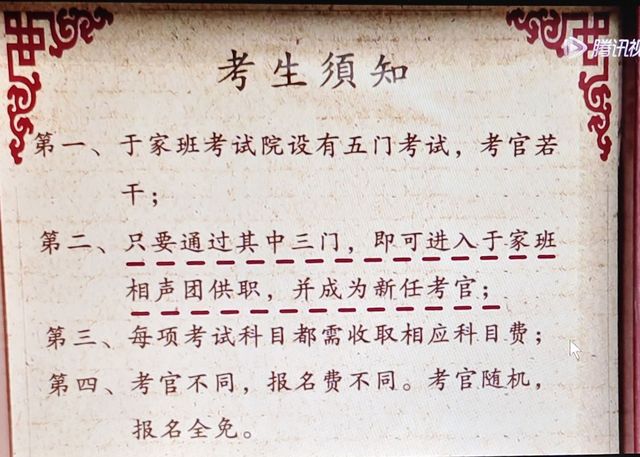 腾讯视
考生須知
第一、于家班考试院设有五门考试，考官若
干；
第二、只要通过其中三门，即可进入于家班
相声团供职，并成为新任考官；
第三、每项考试科目都需收取相应科目费；
第四、考官不同，报名费不同。考官随机，
报名全免。